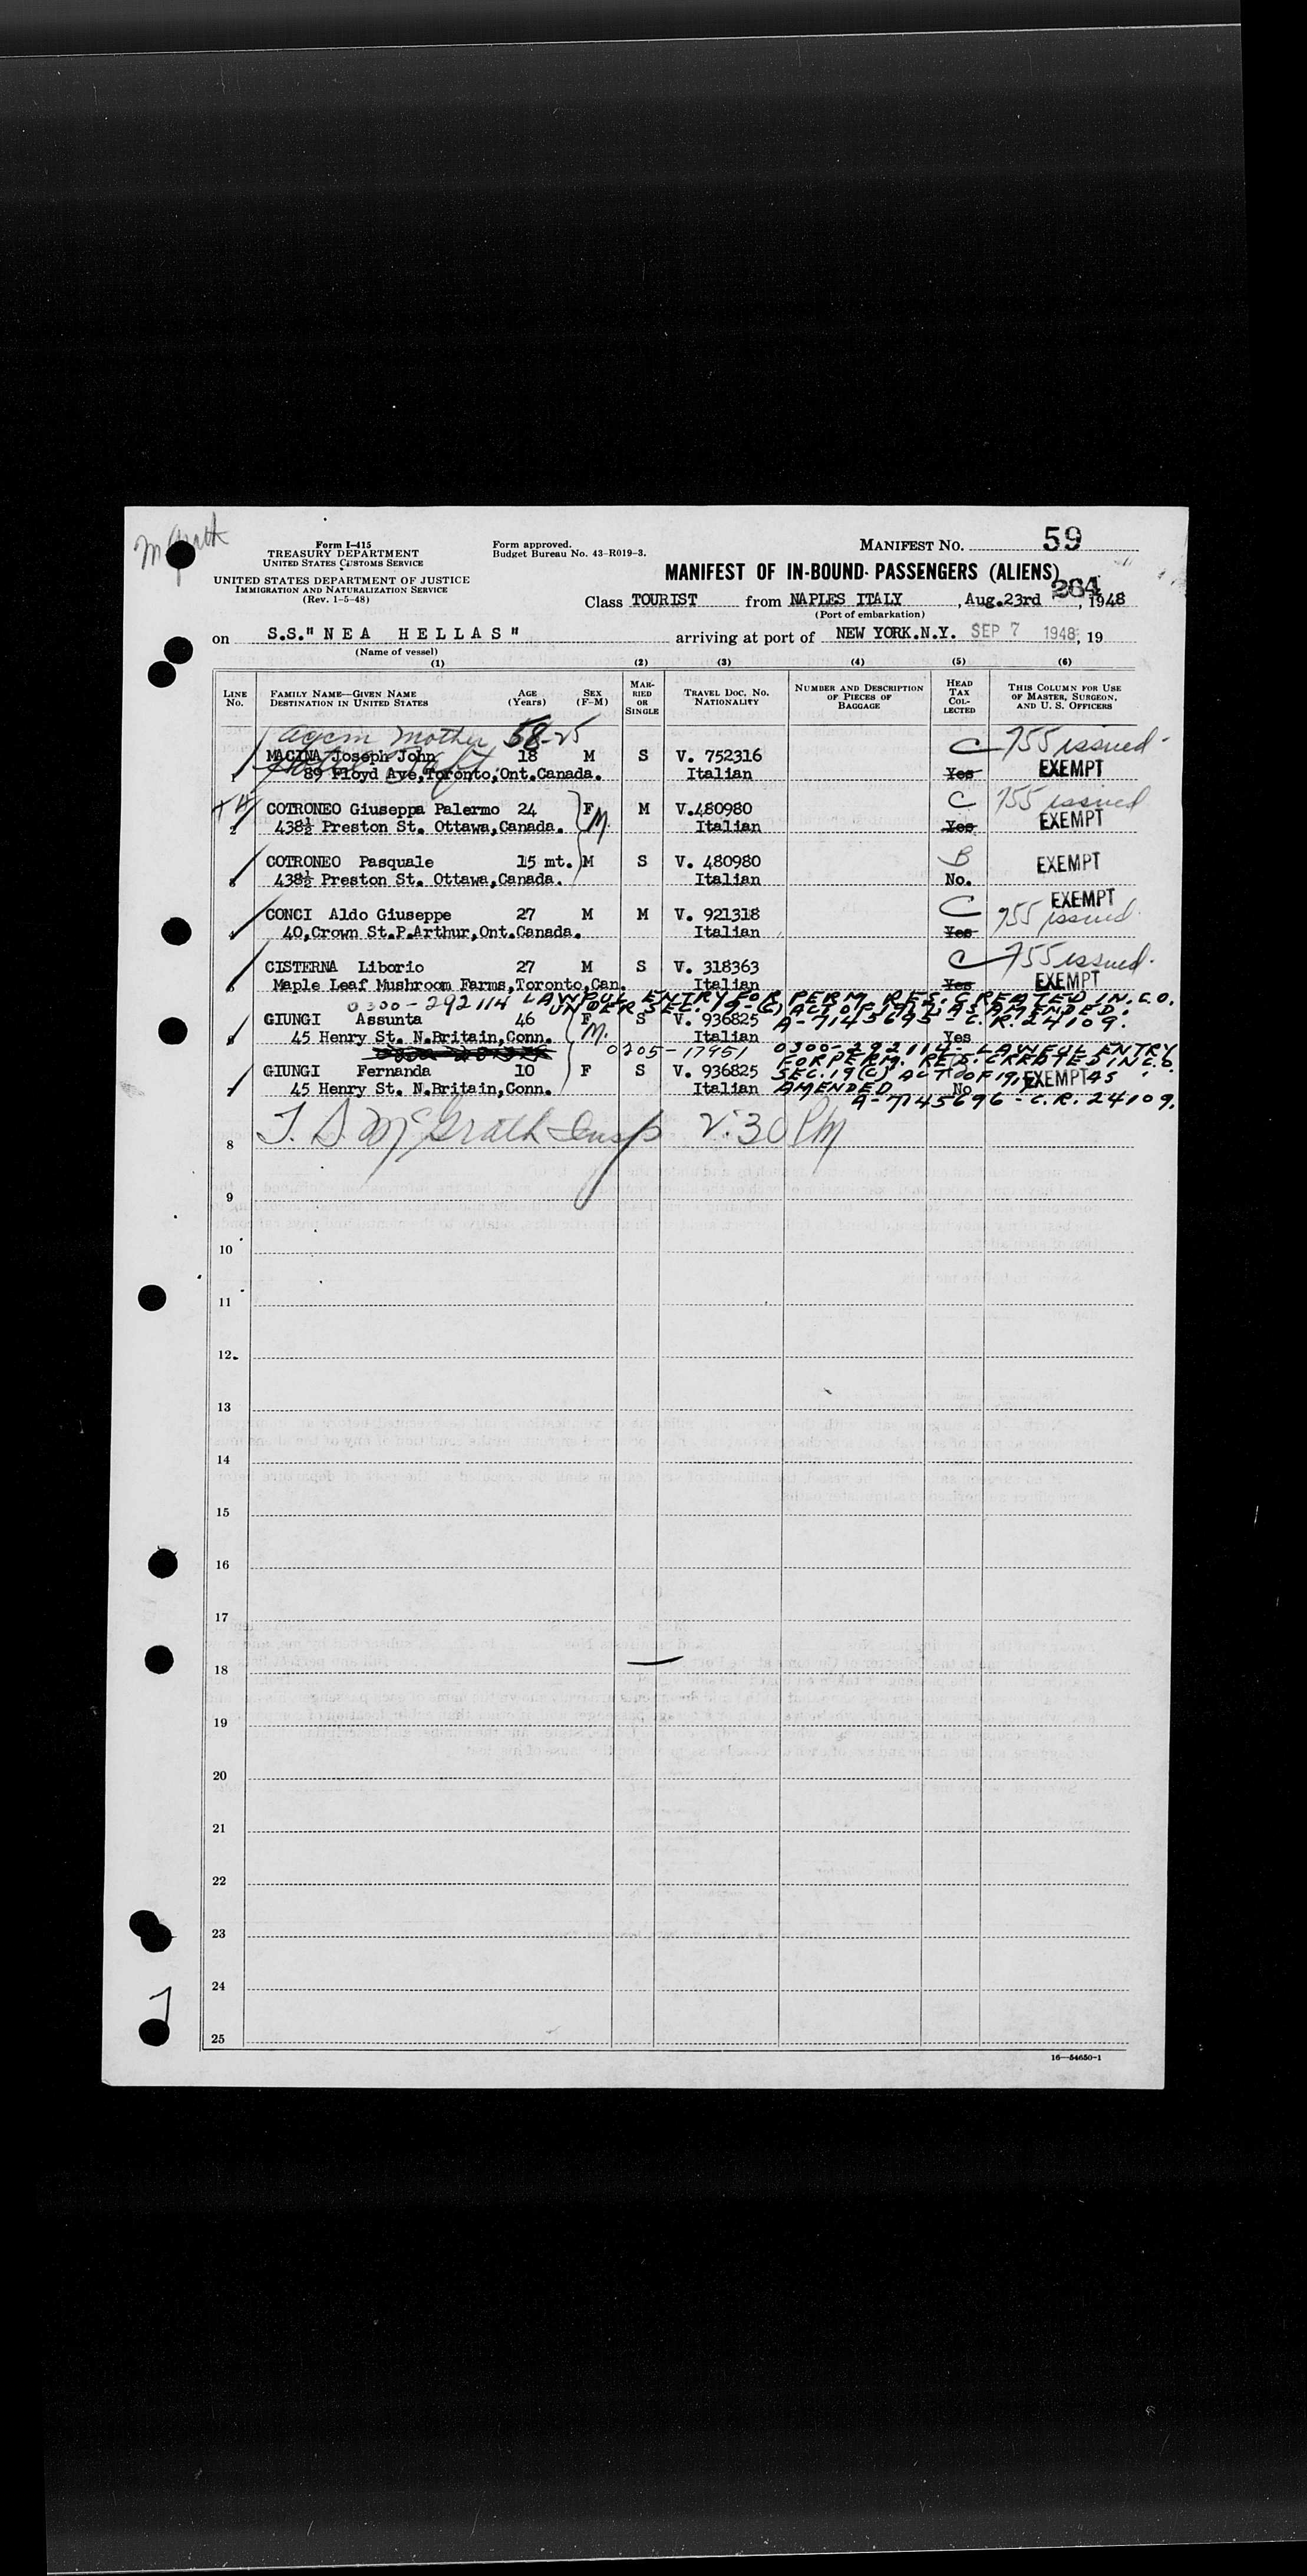 McGrath
Form I-415
TREASURY DEPARTMENT
UNITED STATES CUSTOMS SERVICE
UNITED STATES DEPARTMENT OF JUSTICE
IMMIGRATION AND NATURALIZATION SERVICE
(Rev. 1-5-48)
Form approved.
Budget Bureau No. 43-R019-3.
MANIFEST NO. 59
MANIFEST OF IN-BOUND PASSENGERS (ALIENS)
264
Class TOURIST from NAPLES ITALY, Aug.23rd, 1948
(Port of embarkation)
on S.S."NEA HELLAS" arriving at port of NEW YORK.N.Y. SEP 7 1948, 19
(Name of vessel)
(1) (2) (3) (4) (5) (6)
LINE No. FAMILY NAME—GIVEN NAME DESTINATION IN UNITED STATES AGE (Years) SEX (F-M) MARRIED OR SINGLE TRAVEL DOC. NO. NATIONALITY NUMBER AND DESCRIPTION OF PIECES OF BAGGAGE HEAD TAX COLLECTED THIS COLUMN FOR USE OF MASTER, SURGEON, AND U. S. OFFICERS
accm mother 58-25
MACINA Joseph John 18 M S V. 752316 C 755 issued
89 Floyd Ave,Toronto,Ont.Canada. Italian Yes EXEMPT
COTRONEO Giuseppa Palermo 24 F M V.480980 C 755 issued
438½ Preston St. Ottawa,Canada. M. Italian Yes EXEMPT
COTRONEO Pasquale 15 mt. M S V. 480980 B EXEMPT
438½ Preston St. Ottawa,Canada. Italian No.
CONCI Aldo Giuseppe 27 M M V. 921318 C EXEMPT
40,Crown St.P.Arthur,Ont.Canada. Italian Yes 755 issued
CISTERNA Liborio 27 M S V. 318363 C 755 issued.
Maple Leaf Mushroom Farms,Toronto,Can. Italian Yes EXEMPT
0300-292114 LAWFUL ENTRY FOR PERM. RES. CREATED IN. C.O.
UNDER SEC. 19-(C) ACT OF 1917 AS AMENDED.
GIUNGI Assunta 46 F S V. 936825 A-7145695 - C.R. 24109.
45 Henry St. N.Britain,Conn. M. Italian Yes
0205-17951 0300-292114- LAWFUL ENTRY
FOR PERM. RES. CREATED IN C.O.
GIUNGI Fernanda 10 F S V. 936825 SEC. 19(C) ACT OF 1917 AS EXEMPT
45 Henry St. N.Britain,Conn. Italian AMENDED No
A-7145696 - C.R. 24109.
8 T. S. McGrath Insp 2:30 PM
9
10
11
12
13
14
15
16
17
18
19
20
21
22
23
24
25
16—54650-1